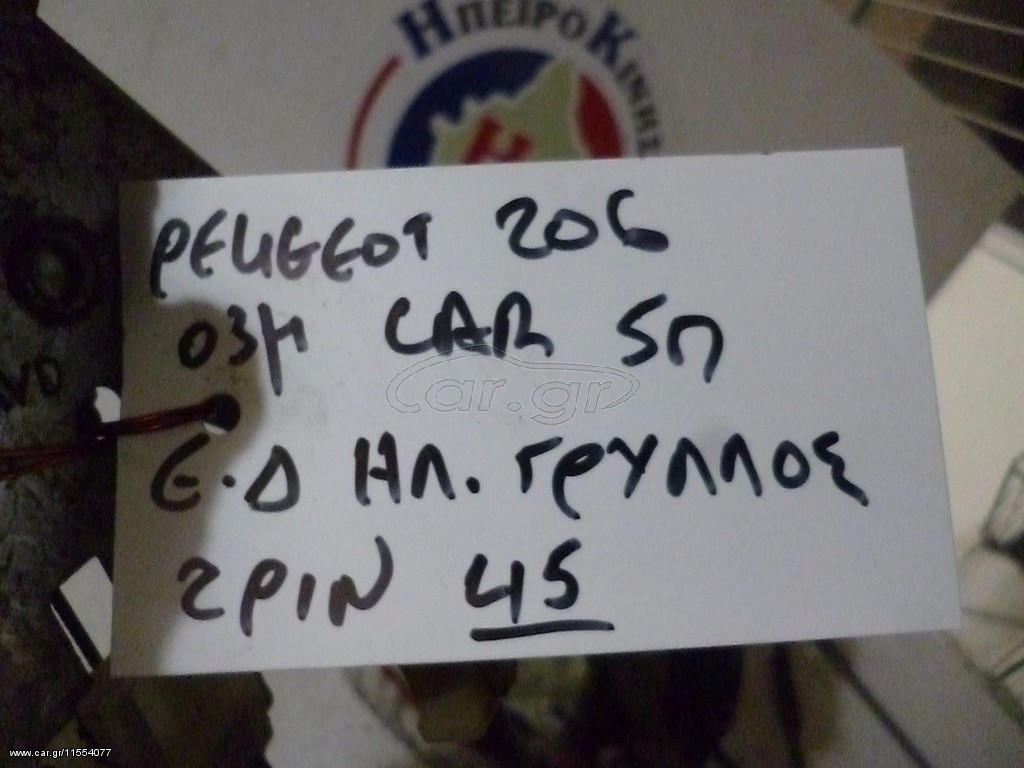 ΗΠΕΙΡΟΚΙΝΗΣ
PEUGEOT 206
03μ CAR 5Π
car.gr
Ε.Δ ΗΛ. ΓΡΥΛΛΟΣ
2PIN 45
www.car.gr/11554077